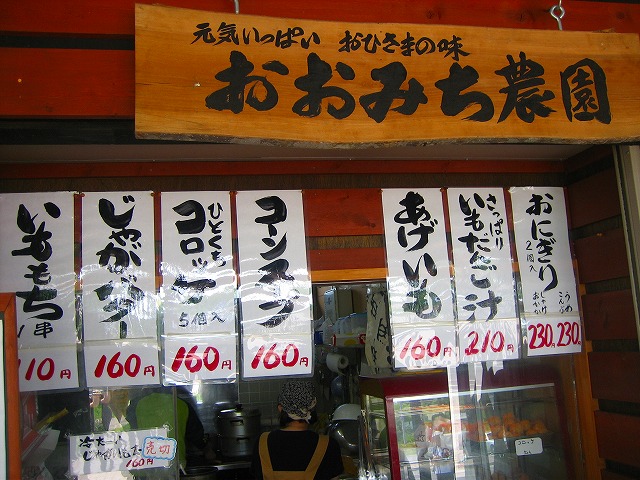 元気いっぱい おひさまの味
おおみち農園
いももち
1串
110円
じゃがバター
160円
ひとくち
コロッケ
5個入
160円
コーンスープ
160円
あげいも
160円
さっぱり
いもだんご汁
210円
おにぎり
2個入
うめ
こんぶ
しゃけ
おかか
230円 230円
冷たーい
160円
売切
コロッケ